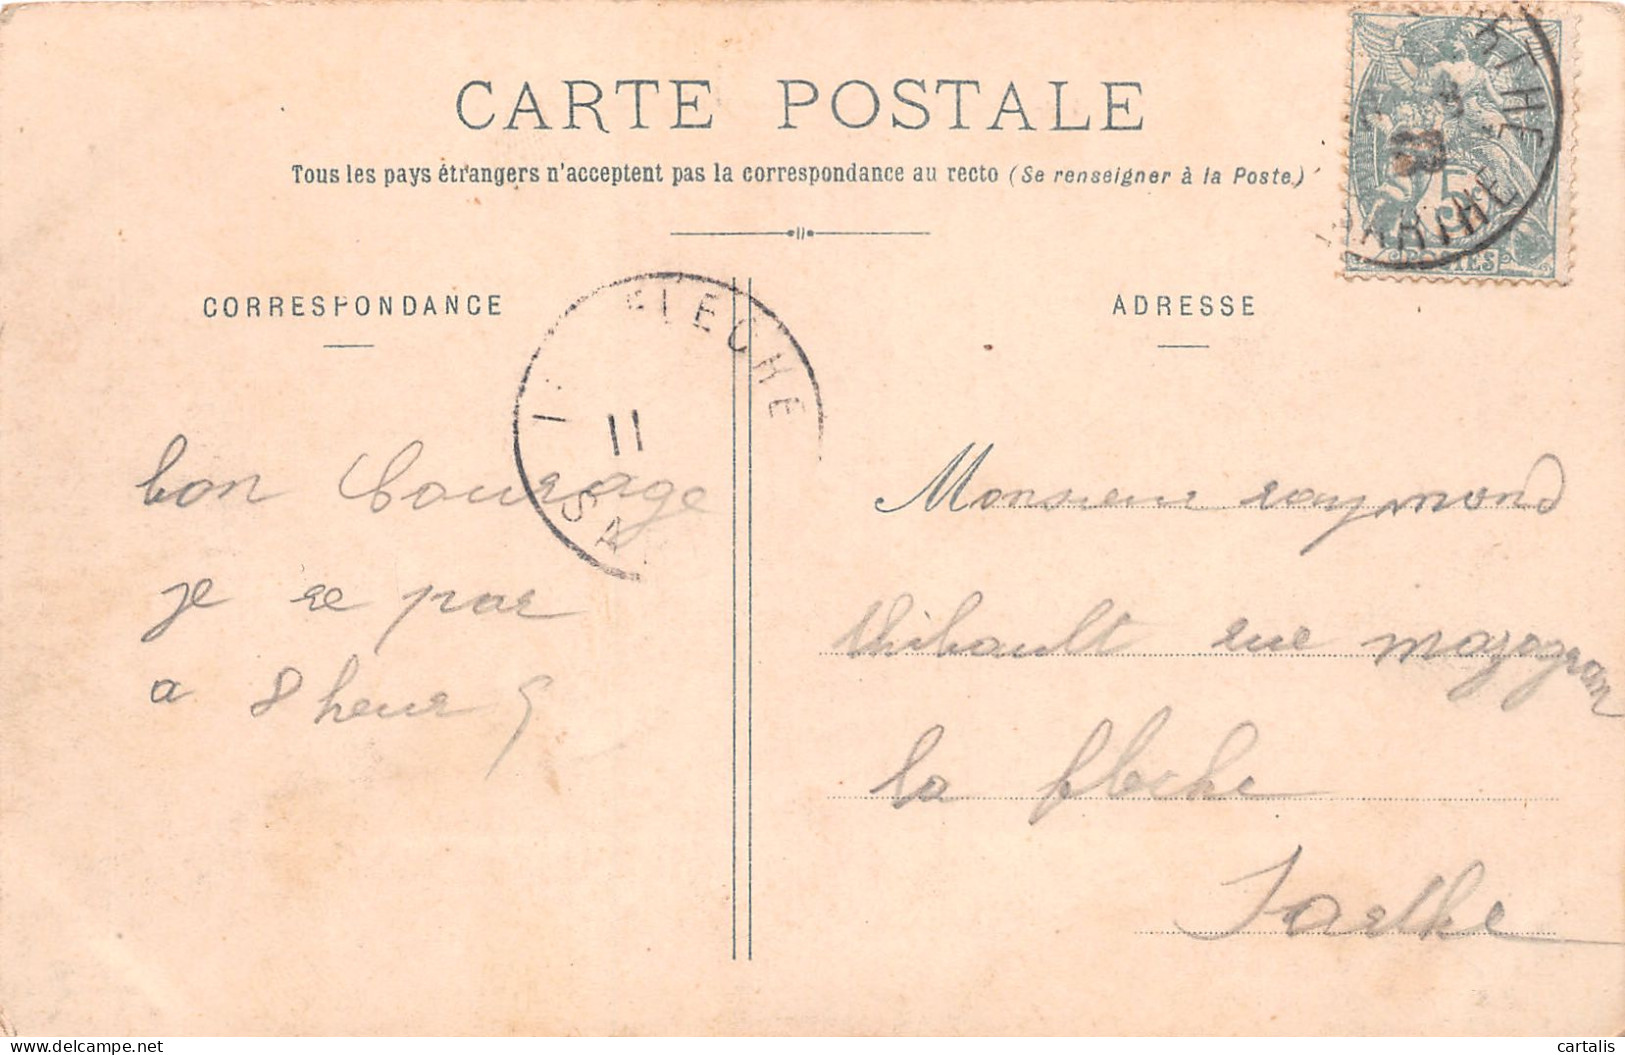 CARTE POSTALE
Tous les pays étrangers n'acceptent pas la correspondance au recto (Se renseigner à la Poste)
CORRESPONDANCE
ADRESSE
FLECHE
11
SA
5
POSTES
bon Courage
je re par
a 8 heure
Monsieur raymond
thibault rue mazagran
la fleche
Sarthe
delcampe.net
cartalis